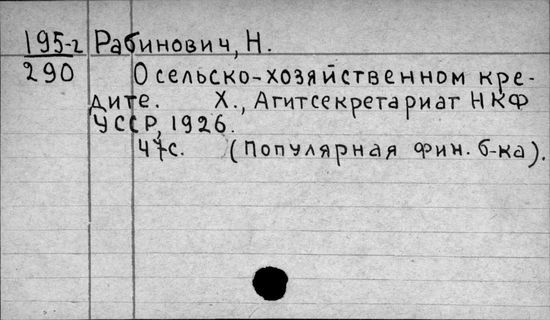 195-2 Рабинович, Н.
290 О сельско-хозяйственном кре-
дите. Х., Агитсекретариат НКФ
УССР, 1926.
47с. (Популярная фин. б-ка).